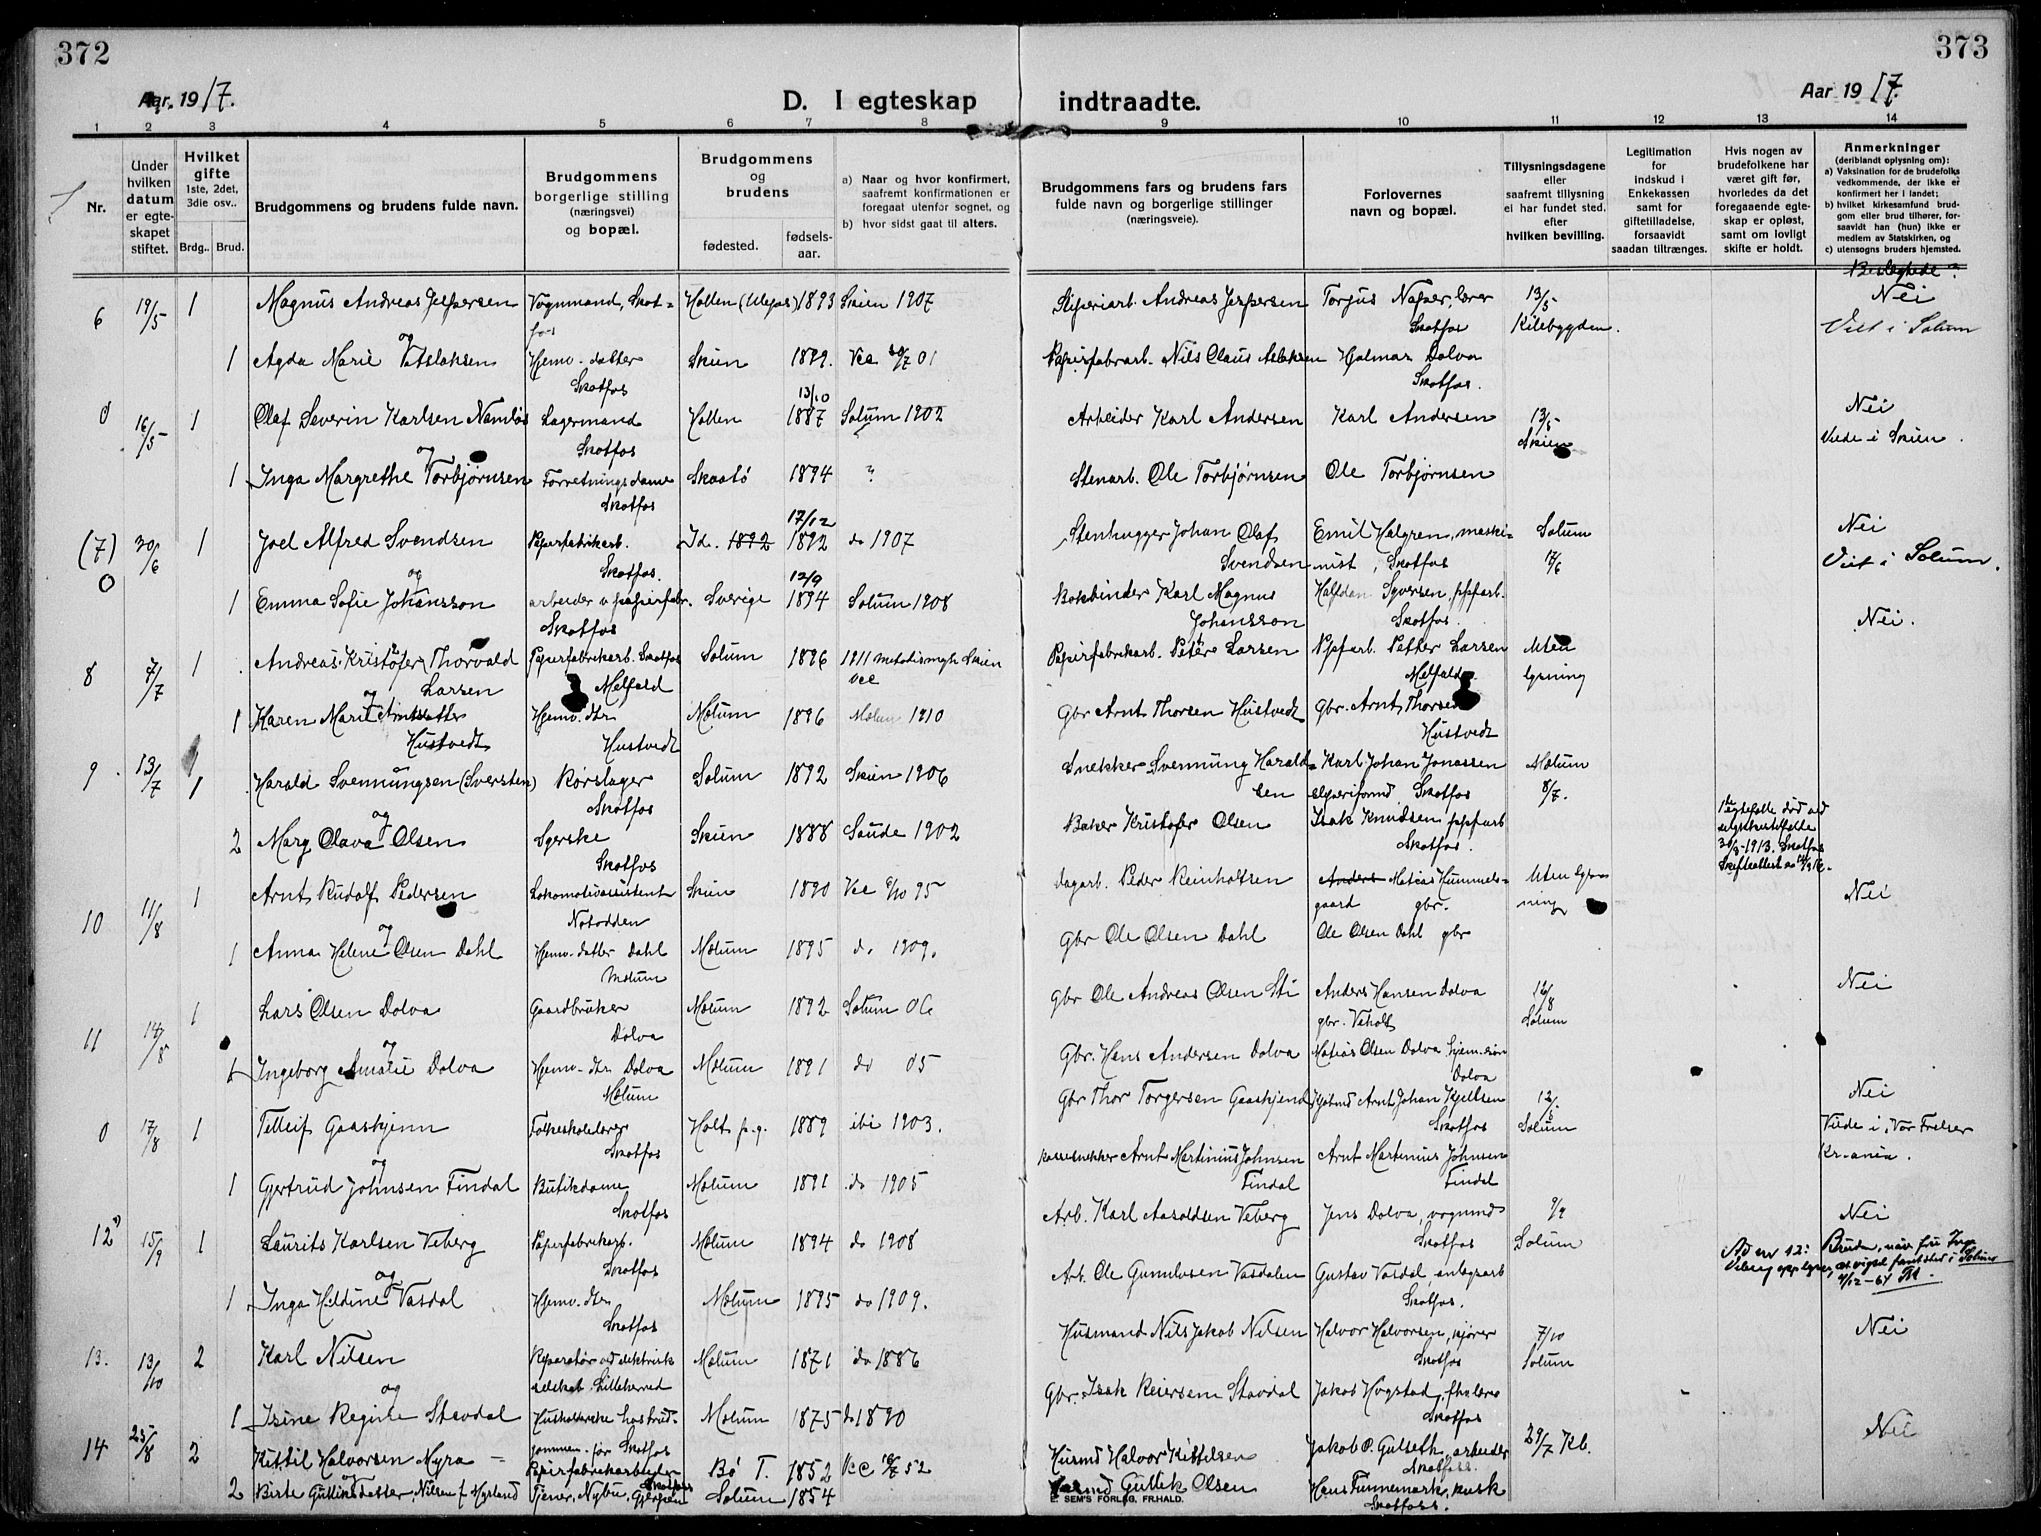 372
373
Aar. 1917.
D. I egteskap indtraadte.
Aar 1917.
1 2 3 4 5 6 7 8 9 10 11 12 13 14
Nr.
Under hvilken datum er egteskapet stiftet.
Hvilket gifte 1ste, 2det, 3die osv..
Brdg.. Brud.
Brudgommens og brudens fulde navn.
Brudgommens borgerlige stilling (næringsvei) og bopæl.
Brudgommens og brudens
fødested.
fødselsaar.
a) Naar og hvor konfirmert, saafremt konfirmationen er foregaat utenfor sognet, og
b) hvor sidst gaat til alters.
Brudgommens fars og brudens fars fulde navn og borgerlige stillinger (næringsveie).
Forlovernes navn og bopæl.
Tillysningsdagene eller saafremt tillysning ei har fundet sted, efter hvilken bevilling.
Legitimation for indskud i Enkekassen samt for giftetilladelse, forsaavidt saadan tiltrænges.
Hvis nogen av brudefolkene har været gift før, hvorledes da det foregaaende egteskap er opløst, samt om lovligt skifte er holdt.
Anmerkninger (deriblandt oplysning om):
a) Vaksination for de brudefolks vedkommende, der ikke er konfirmert her i landet;
b) hvilket kirkesamfund brudgom eller brud tilhører, forsaavidt han (hun) ikke er medlem av Statskirken, og
c) utensogns bruders hjemsted.
Beslegtede?
6 19/5 1 Magnus Andreas Jespersen Vognmand, Skotfos Hollen (Ulefos) 1893 Skien 1907 Andreas Jespersen Torjus Næper, lærer Skotfos 13/5 Kilebygden. Nei Viet i Solum
og
1 Agda Marie Hjemv. datter Skotfos Skien 1899. Vcc 20/7 01 Papirfabarb. Nils Claus Hjalmar Dolva Skotfos.
0 16/5 1 Olaf Severin Karlsen Namløs Lagermand Skotfos Hollen 13/10 1887 Solum 1902 Arbeider Karl Andersen Karl Andersen 13/5 Skien Nei Viede i Skien.
og
1 Inga Margrethe Torbjørnsen Forretningsdame Skotfos Skaatø 1894 " Stenarb. Ole Torbjørnsen Ole Torbjørnsen
(7) 0 30/6 1 Joel Alfred Svendsen Papirfabrikarb. Skotfos. Id. 1892 17/12 1892 do 1907 Stenhugger Johan Olaf Svendsen Emil Halgren, maskinist, Skotfos Solum 17/6 Nei Viet i Solum.
og
1 Emma Sofie Johansson arbeider v papirfabr. Skotfos Sverige 12/9 1894 Solum 1908 Bokbinder Karl Magnus Johansson Halfdan Syversen, ppfarb. Skotfos. Nei.
8 7/7 1 Andreas Kristofer Thorvald Larsen Papirfabrikarb. Skotfos Melfald Solum 1896 1911 metodismgh Skien vcc Papirfabrikarb. Peter Larsen Ppfarb. Petter Larsen Melfald Uten lysning
og
1 Karen Marie Arntsdatter Hustvedt Hjemv. dtr. Hustvedt Melum 1896 Melum 1910 Gbr Arnt Thorsen Hustvedt Gbr. Arnt Thorsen Hustvedt
9. 13/7 1 Harald Svennungsen (Sversten) Rørslager Skotfos Solum 1892 Skien 1906 Snekker Svennung Haraldsen Karl Johan Jonassen Skotfos Melum 8/7.
og
2 Marg Olava Olsen Syerske Skotfos Skien 1888 Saude 1902 Baker Kristofer Olsen Isak Knudsen ppfarb Skotfos. 1ste egtefælle død ved 30/3-1913. Skotfos
10 11/8 1 Arnt Rudolf Pedersen Lokomotivassistent Notodden Skien 1890 Vcc 6/10 95 Dagarb. Peder Reinholtsen Anders Matias Hummelsgaard gbr. Uten lysning Nei
og
1 Anna Helene Olsen Dahl Hjemv. datter Dahl Melum Melum 1895 do 1909. Gbr Ole Olsen Dahl Ole Olsen Dahl gbr
11 14/8 1 Lars Olsen Dolva Gaardbruker Dolva Melum 1892 Solum 06 Gbr Ole Andreas Olsen Sti Anders Hansen Dolva gbr. Veholt 12/8 Solum Nei
og
1 Ingeborg Amalie Dolva Hjemv. dtr Dolva Melum Melum 1891 do 05 Gbr. Hans Andersen Dolva Matias Olsen Dolva hjem.søn Dolva
0 17/8 1 Tellef Gaaskjenn Folkeskolelærer Skotfos Holt p.g. 1889 ibi 1903. Gbr Thor Torgersen Gaaskjenn Arnt Johan Kjeltsen Skotfos 12/8 Solum Nei Viede i Vor Frelser Kr.ania.
og
1 Gjertrud Johnsen Findal Butikdame Skotfos Melum 1891 do 1905 Arnt Martinius Johnsen Findal Arnt Martinius Johnsen Findal
12 15/9 1 Laurits Karlsen Veberg Papirfabrikarb. Skotfos Melum 1894 do 1908 Arb. Karl Aasoldsen Veberg Jens Dolva, vognmd Skotfos 9/9 Solum Nei
og
1 Inga Hildine Vasdal Hjemv. dtr. Skotfos Melum 1895 do 1909. Arb. Ole Gunulvsen Vasdalen Gustav Vasdal, anlegsarb Skotfos. Ad nr 12: Bruden, nåv. fru Inga Veberg opplyser, at vigsel fant sted i Solum 4/12-64
13. 13/10 2 Karl Nilsen Reparatør ved elektrisk selskab. Lilleherred Melum 1871 do 1886 Husmand Nils Jakob Nilsen Halvor Halvorsen, kjører Skotfos 7/10 Solum Nei
og
1 Isine Regine Stavdal Husholderske hos brudgommen. før Skotfos Melum 1875 do 1890 Gbr. Isak Reiersen Stavdal Jakob Høgstad, fhv lærer Skotfos
14 25/8 2 Kittil Halvorsen Myra Papirfabrikarbeider Skotfos Bø T. 1852 Vcc 52 Husmd Halvor Kittelsen Jakob P. Gulseth, arbeider Skotfoss. 29/7 Kb. Nei
og
2 Birte Gulliksdatter, Nilsen f. Myrland Tjener, Nybu, Gjerpen Solum 1854 Gullik Olsen Hans Finnemark, kusk Skotfoss.
E. SEM'S FORLAG, FR.HALD.